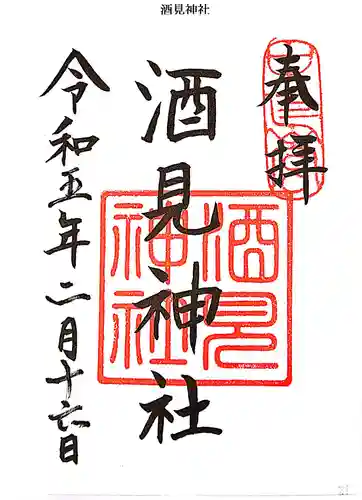 酒見神社
奉拝
奉拝
酒見神社
酒見神社
令和五年二月十六日